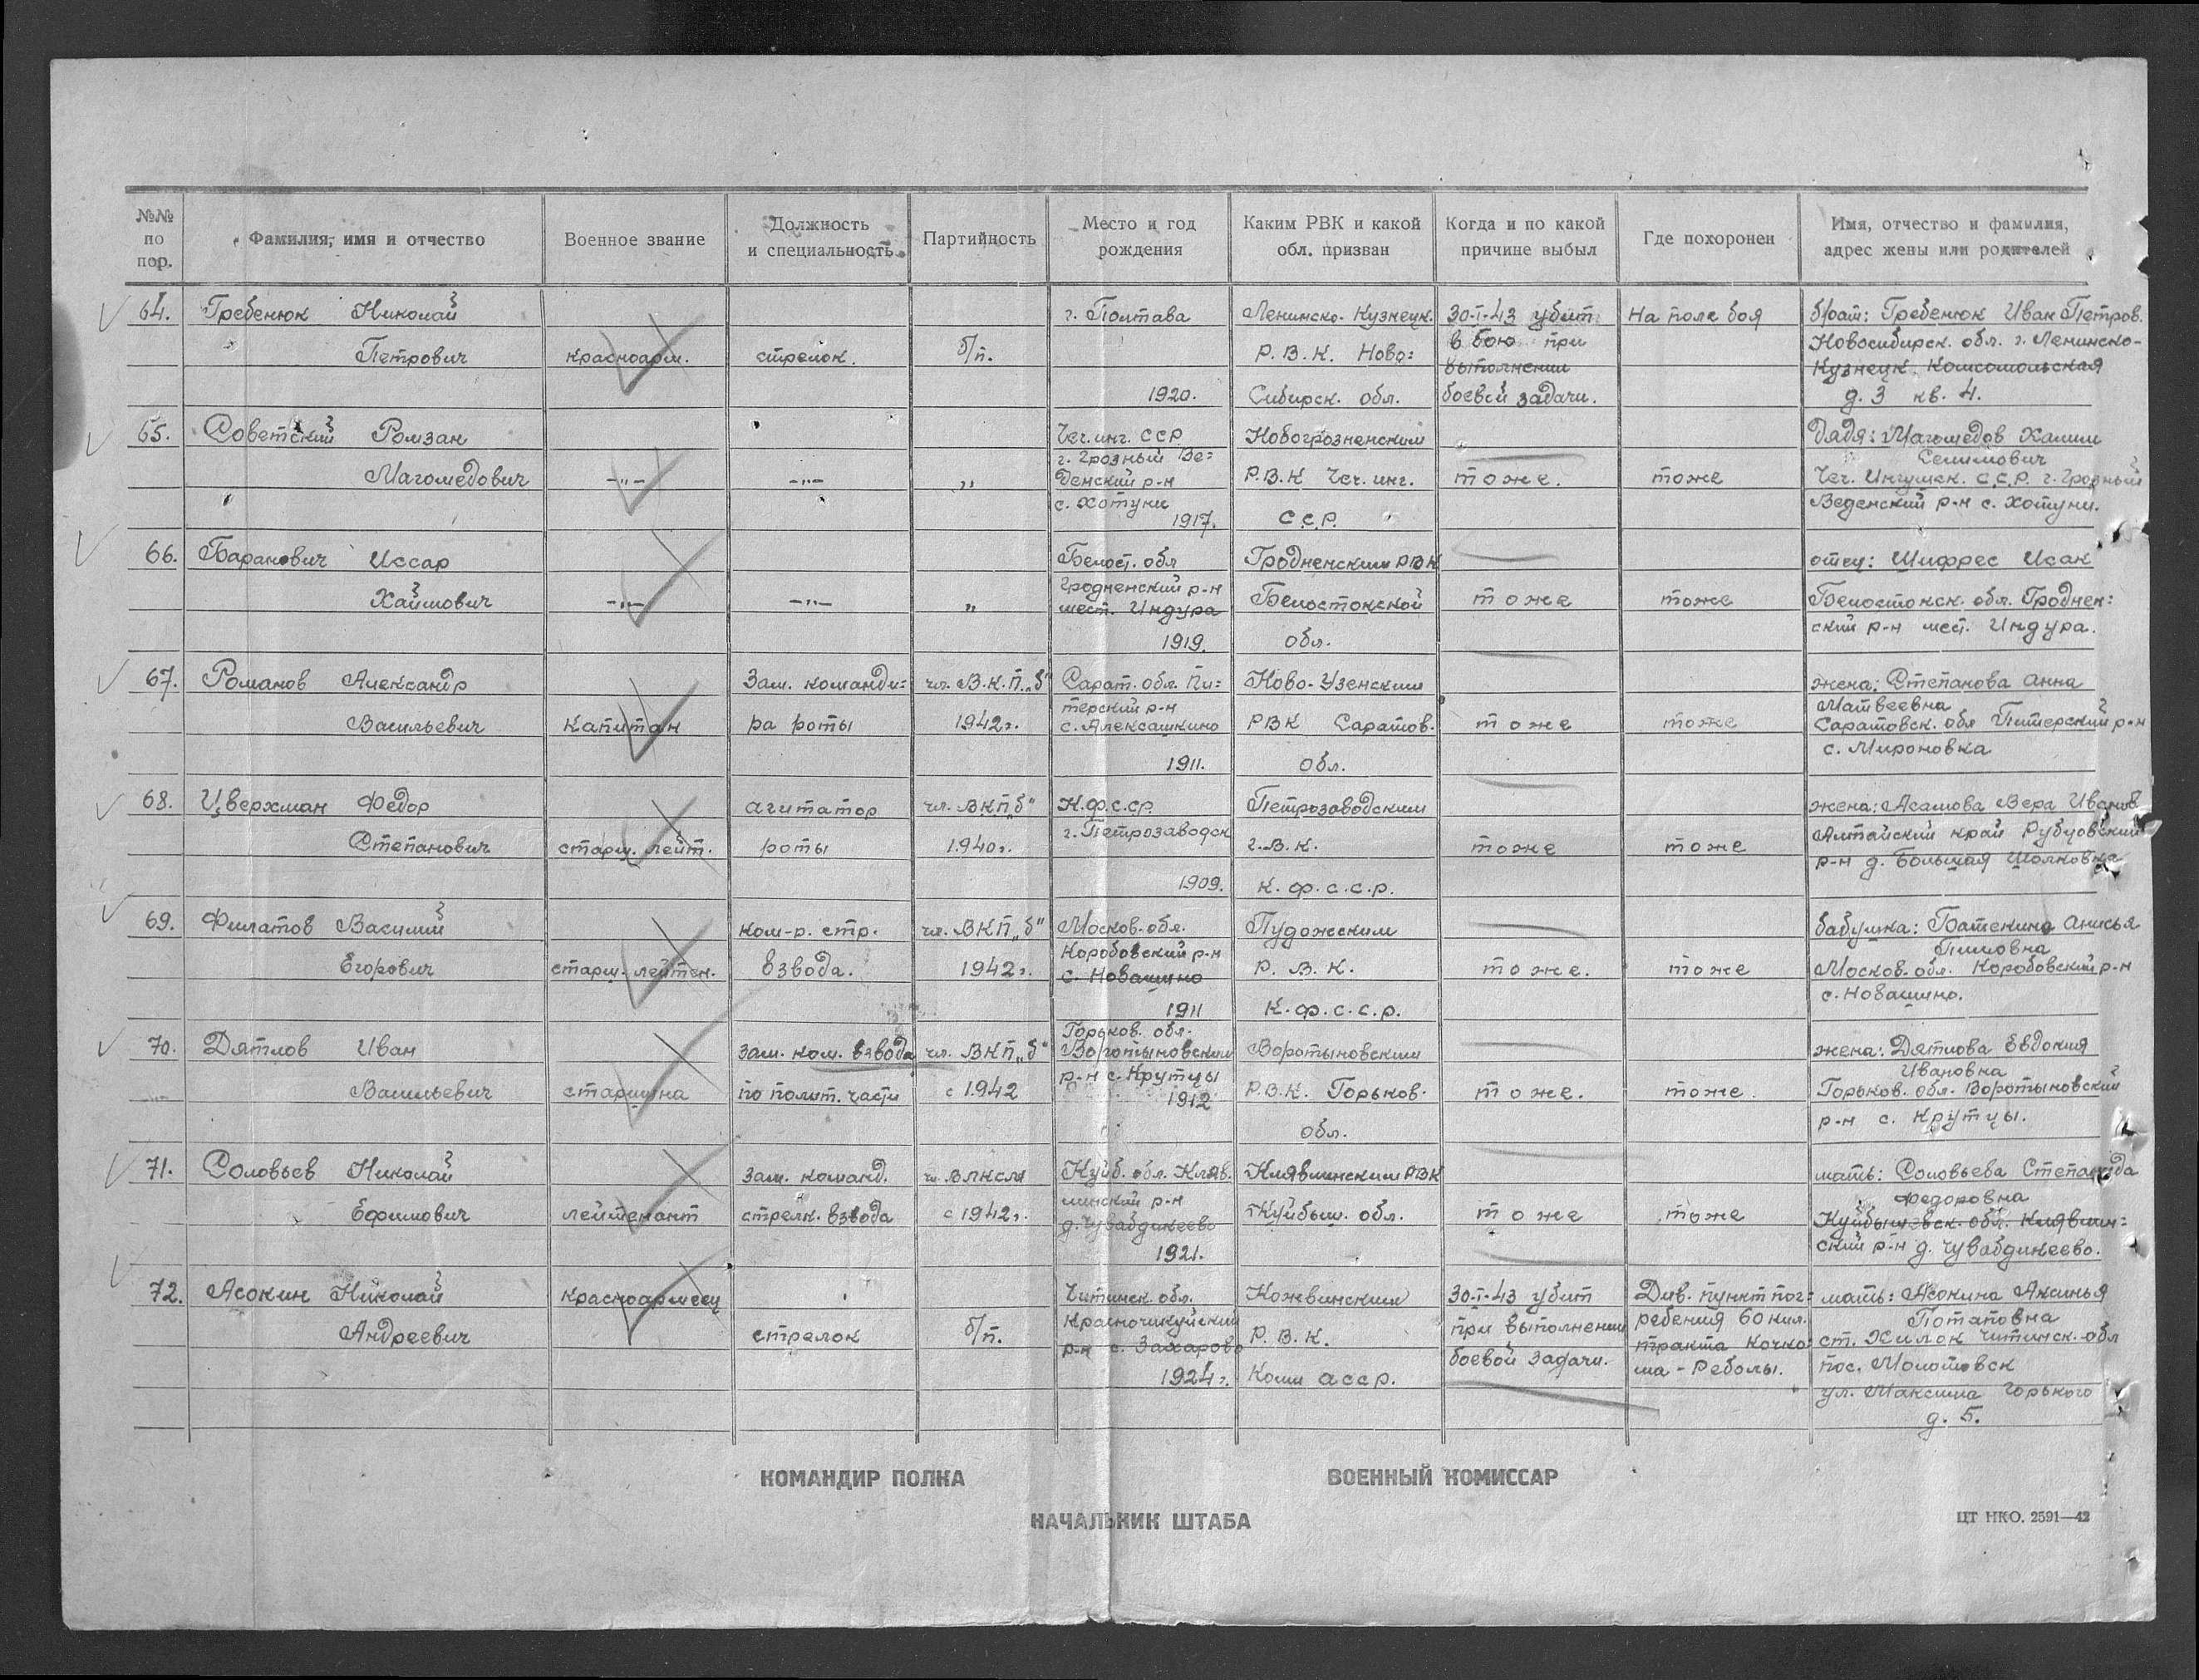 №№ по пор.
Фамилия, имя и отчество
Военное звание
Должность и специальность
Партийность
Место и год рождения
Каким РВК и какой обл. призван
Когда и по какой причине выбыл
Где похоронен
Имя, отчество и фамилия, адрес жены или родителей
64. Гребенюк Николай г. Полтава Ленинско-Кузнецк. 30-I-43 убит На поле боя брат: Гребенюк Иван Петров.
Петрович красноарм. стрелок. б/п. Р.В.К. Ново= в бою при Новосибирск. обл. г. Ленинско-
выполнении Кузнецк. Комсомольская
1920. Сибирск. обл. боевой задачи. д. 3 кв. 4.
65. Советский Ромзан Чеч. инг. ССР Новогрозненским дядя: Магомедов Халим
г. Грозный Ве= Селимович
Магомедович -"- -"- " денский р-н Р.В.К Чеч. инг. тоже. тоже Чеч. Ингушск. С.С.Р. г. Грозный
с. Хотуни Веденский р-н с. Хотуни.
1917. С.С.Р.
66. Баранович Иссар Белост. обл Гродненским РВК отец: Шифрес Исак
Хаймович -"- -"- " Гродненский р-н Белостокской тоже тоже Белостокск. обл. Гроднен=
мест. Индура ский р-н мест. Индура.
1919. обл.
67. Романов Александр Зам. команди= чл. В.К.П.„б" Сарат. обл. Пи= Ново-Узенским жена: Степанова Анна
терский р-н Матвеевна
Васильевич капитан ра роты 1942г. с. Алексашкино РВК Саратов. тоже тоже Саратовск. обл Питерский р-н
с. Мироновка
1911. обл.
68. Цверхман Федор агитатор чл. ВКП„б" К.ф.с.ср. Петрозаводским жена: Асамова Вера Иванов
г. Петрозаводск Алтайский край Рубцовский
Степанович старш. лейт. роты 1940г. г.В.К. тоже тоже р-н д. Большая Шолковка
1909. К. ф. с. с. р.
69. Филатов Василий ком-р. стр. чл. ВКП„б" Москов. обл. Пудожским бабушка: Батенина Анисья
Коробовский р-н Пимовна
Егорович старш. лейтен. взвода. 1942г. с. Новашино Р.В.К. тоже. тоже Москов. обл. Коробовский р-н
с. Новашино.
1911 К. ф. с. с. р.
Горьков. обл.
70. Дятлов Иван Зам. ком. взвода чл. ВКП„б" Воротыновский Воротыновским жена: Дятлова Евдокия
р-н с. Крутцы Ивановна
Васильевич старшина по полит. части с 1942 1912 Р.В.К. Горьков. тоже. тоже. Горьков. обл. Воротыновский
р-н с. Крутцы.
обл.
71. Соловьев Николай зам. команд. чл. ВЛКСМ Куйб. обл. Кляв. Клявлинским РВК мать: Соловьева Степанида
линский р-н Федоровна
Ефимович лейтенант стрелк. взвода с 1942г. д. Чувабдикеево Куйбыш. обл. тоже тоже Куйбышевск. обл. Клявлин=
1921. ский р-н д. Чувабдикеево.
72. Асокин Николай красноармеец Читинск. обл. Кожвинским 30-I-43 убит Див. пункт пог= мать: Асокина Аксинья
Красночикуйский при выполнении ребения 60 кил. Потаповна
Андреевич стрелок б/п. р-н с. Захарово Р.В.К. боевой задачи. тракта Кочко= ст. Хилок Читинск. обл
ма - Реболы. пос. Молотовск
1924г. Коми асср. ул. Максима Горького
д. 5.
КОМАНДИР ПОЛКА ВОЕННЫЙ КОМИССАР
НАЧАЛЬНИК ШТАБА
ЦТ НКО. 2591—42